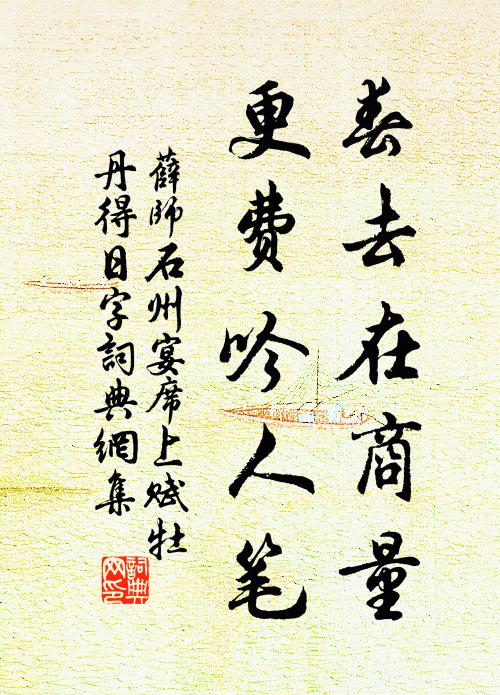 春去在商量
更费吟人笔
薛師石州宴席上赋牡
丹得日字詞典網集
詞典网印